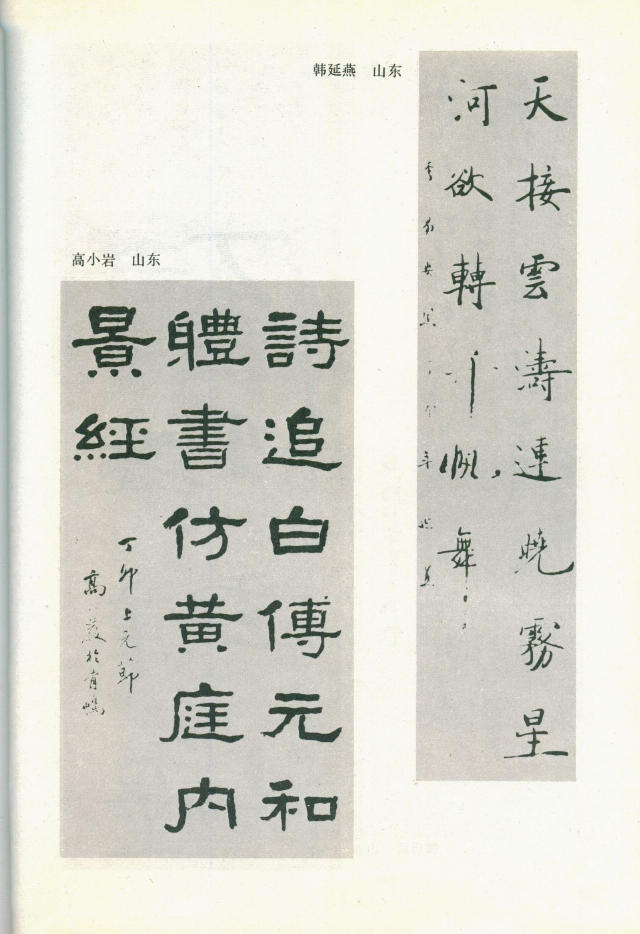 韩延燕　山东
天接雲濤連曉霧星
河欲轉千帆舞
高小岩　山东
詩追白傅元和
體書仿黄庭内
景經
丁卯上元節